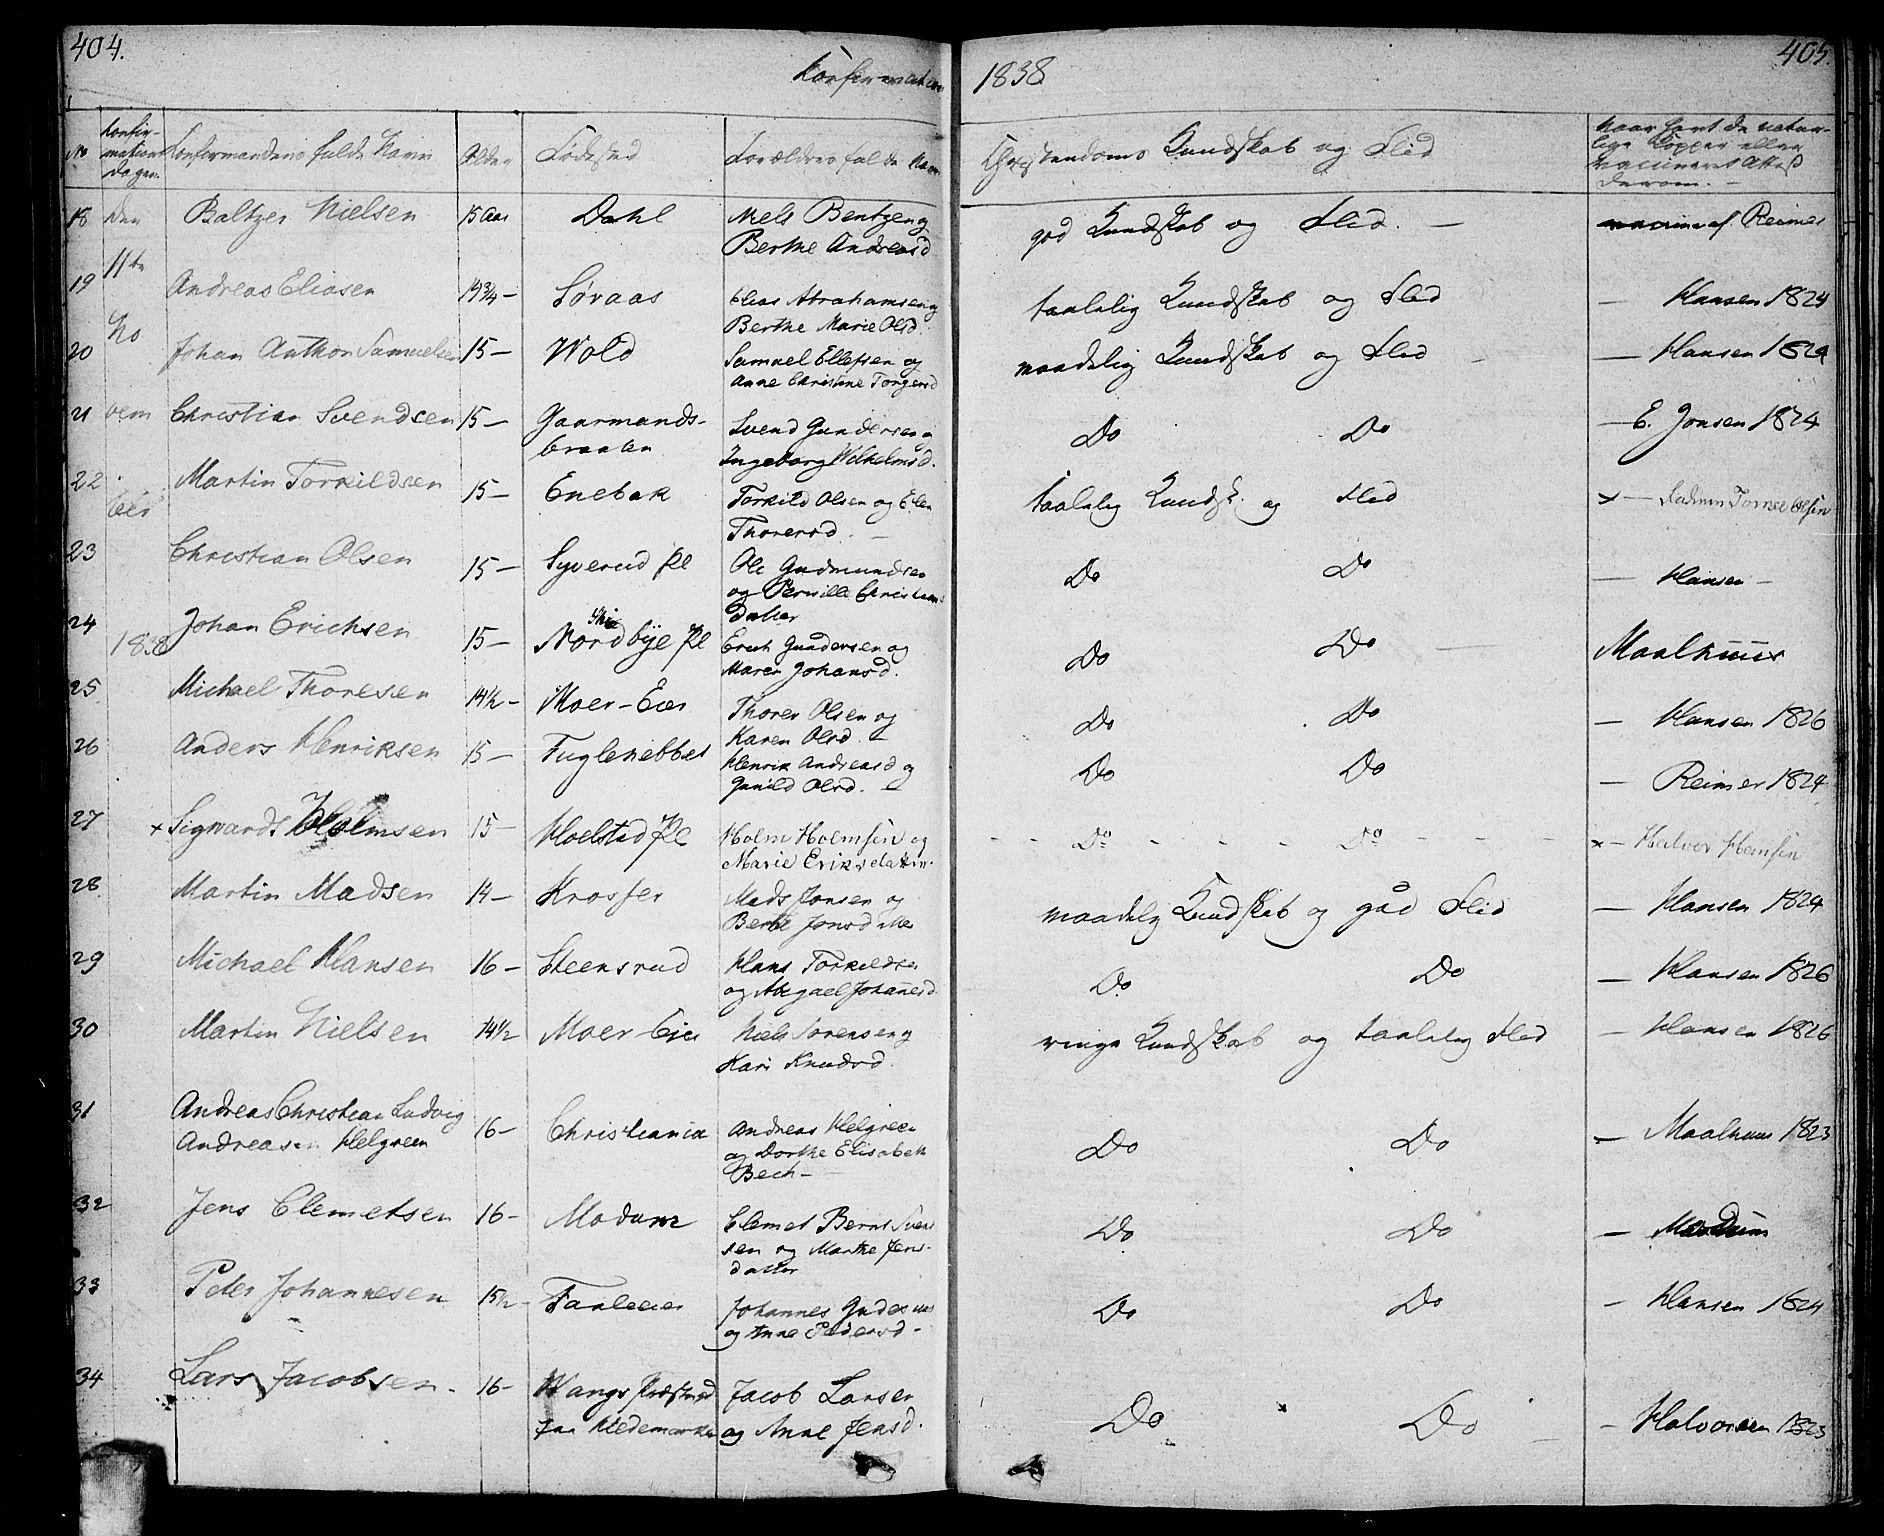 404.
Konfirmation
1838
405.
No
Konfir-
mations
dagen.
Konfirmandens fulde Navn
Alder
Födested
Forældres fulde Navn
Christendoms Kundskab og Flid
Naar havt de natur-
lige Kopper eller
vaccineret Attest
derom. -
18 Den Baltzer Nielsen 15 Aar Dahl Niels Bentzen og
Berthe Andreasd
god Kundskab og Flid. — vaccine af Reimer
11te
19 Andreas Eliasen 14 3/4 — Søraas Elias Abrahamsen og
Berthe Marie Olsd.
taalelig Kundskab og Flid — Hansen 1824
No
20 Johan Anthon Samuelsen 15 — Wold Samuel Ellefsen og
Anne Christine Torgersd
maadelig Kundskab og Flid — Hansen 1824
21 vem Christian Svendsen 15 — Gaarmands-
braaten
Svend Gundersen og
Ingeborg Wilhelmsd.
Do Do — E. Jonsen 1824
22 Martin Torkildsen 15 — Enebak Torkild Olsen og Elen
Thorersd. —
taalelig Kundsk. og Flid x —
ber
23 Christian Olsen 15 — Syverud Pl Ole Gudmundsen
og Pernille Christians
datter
Do Do — Hansen —
24 1838 Johan Erichsen 15 — Ski
Nordbye Pl Erich Gundersen og
Maren Johansd.
Do Do — Maalhuus
25 Michael Thoresen 14 1/2 — Moer-Eier Thorer Olsen og
Karen Olsd. —
Do Do — Hansen 1826
26 Anders Henriksen 15 — Fuglenebbet Henrik Andreasd og
Gunild Olsd. —
Do Do — Reimer 1824
27 x Sigwardt Holmsen 15 — Hoelstad Pl Holm Holmsen og
Marie Eriksdatter.
Do Do x — Halvor Hansen
28 Martin Madsen 14 — Krosser Mads Jonsen og
Berte Jonsdatter
maadelig Kundskab og god Flid — Hansen 1824
29 Michael Hansen 16 — Steensrud Hans Torkildsen
og Abegael Johannesd
Do Do — Hansen 1826
30 Martin Nielsen 14 1/2 Moer Eier Niels Sorensen og
Kari Knudsd.
ringe Kundskab og taalelig Flid — Hansen 1826
31 Andreas Christian Ludvig
Andreasen Helgreen 16 — Christiania Andreas Helgreen
og Dorthe Elisabeth
Bech —
Do Do — Maalhuus 1823
32 Jens Clemetsen 16 — Modum Clemet Bernt Sven
sen og Marthe Jens-
datter
Do Do — Modum
33 Peter Johannesen 15 1/2 — Faaleeier Johannes
og Anne Pedersd —
Do Do — Hansen 1824
34 Lars Jacobsen 16 — Wangs Præstegd
paa Hedemarken
Jacob Larsen
og Anne Jensd.
Do Do — Halvorsen 1823